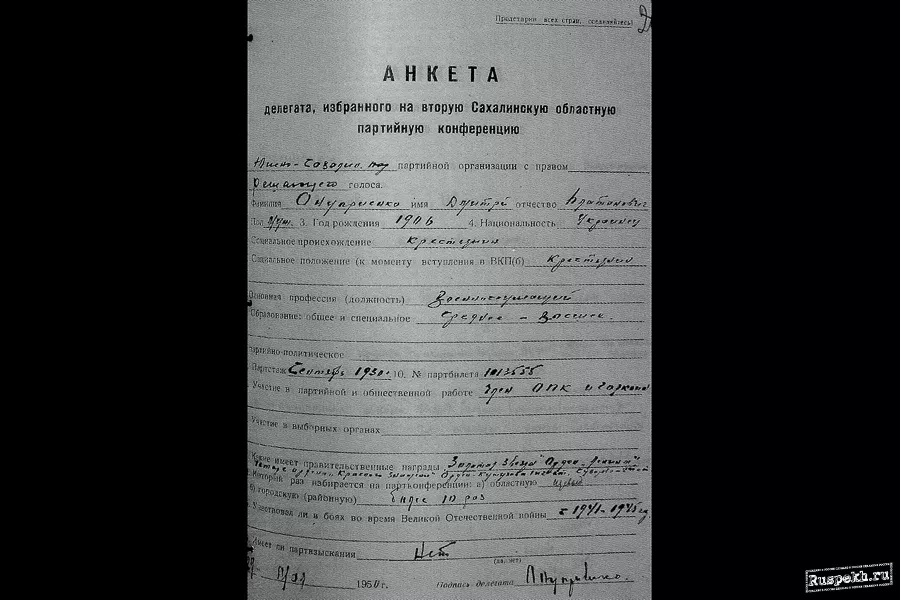 Пролетарии всех стран, соединяйтесь!
АНКЕТА
делегата, избранного на вторую Сахалинскую областную
партийную конференцию
партийной организации с правом
решающего голоса.
Фамилия Онуприенко имя Дмитрий отчество Платонович
Пол муж. 3. Год рождения 1906 4. Национальность Украинец
Социальное происхождение крестьянин
Социальное положение (к моменту вступления в ВКП(б) Крестьянин
Основная профессия (должность) Военнослужащий
Образование: общее и специальное Среднее – высшее.
партийно-политическое
Партстаж Сентябрь 1930г. 10. № партбилета
Участие в партийной и общественной работе Член ОПК и горкома
Участие в выборных органах
Какие имеет правительственные награды Золотая Звезда Орден Ленина
Который раз избирается на партконференции: а) областную первый
б) городскую (районную) более 10 раз
Участвовал ли в боях во время Великой Отечественной войны с 1941-1945гг.
Имеет ли партвзыскания Нет
мая 1950 г. Подпись делегата
Ruspekh.ru